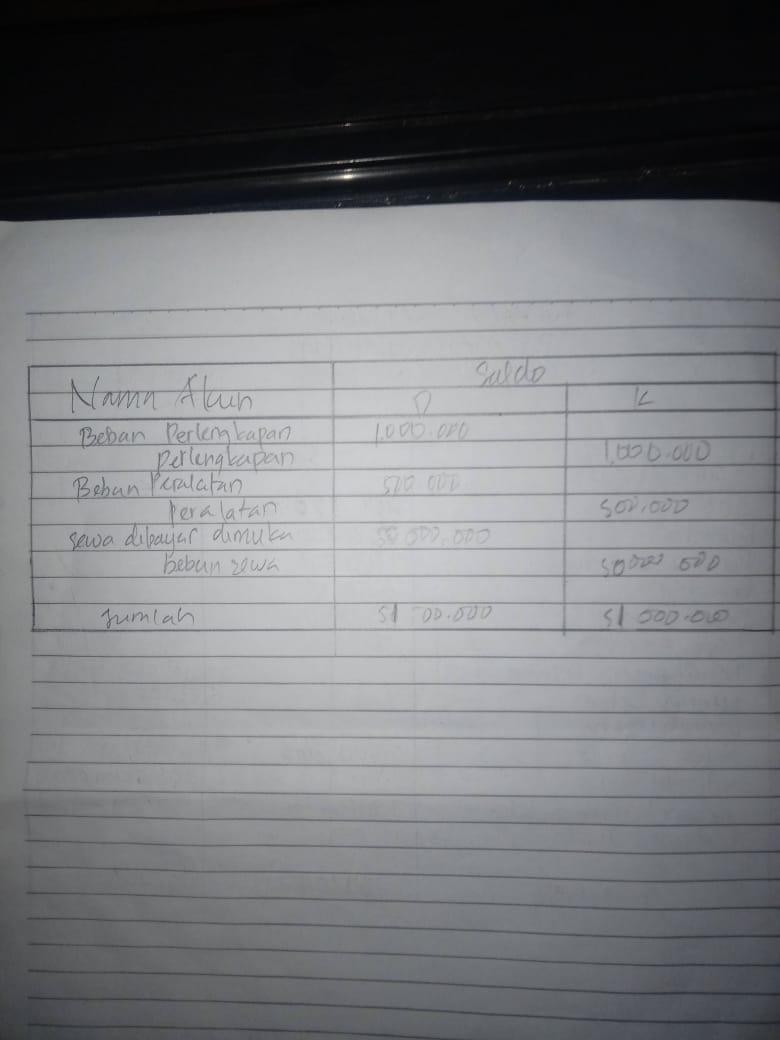 Nama Akun Saldo
D K
Beban Perlengkapan 1.000.000
Perlengkapan 1.000.000
Beban Peralatan 500.000
Peralatan 500.000
sewa dibayar dimuka
beban sewa
Jumlah